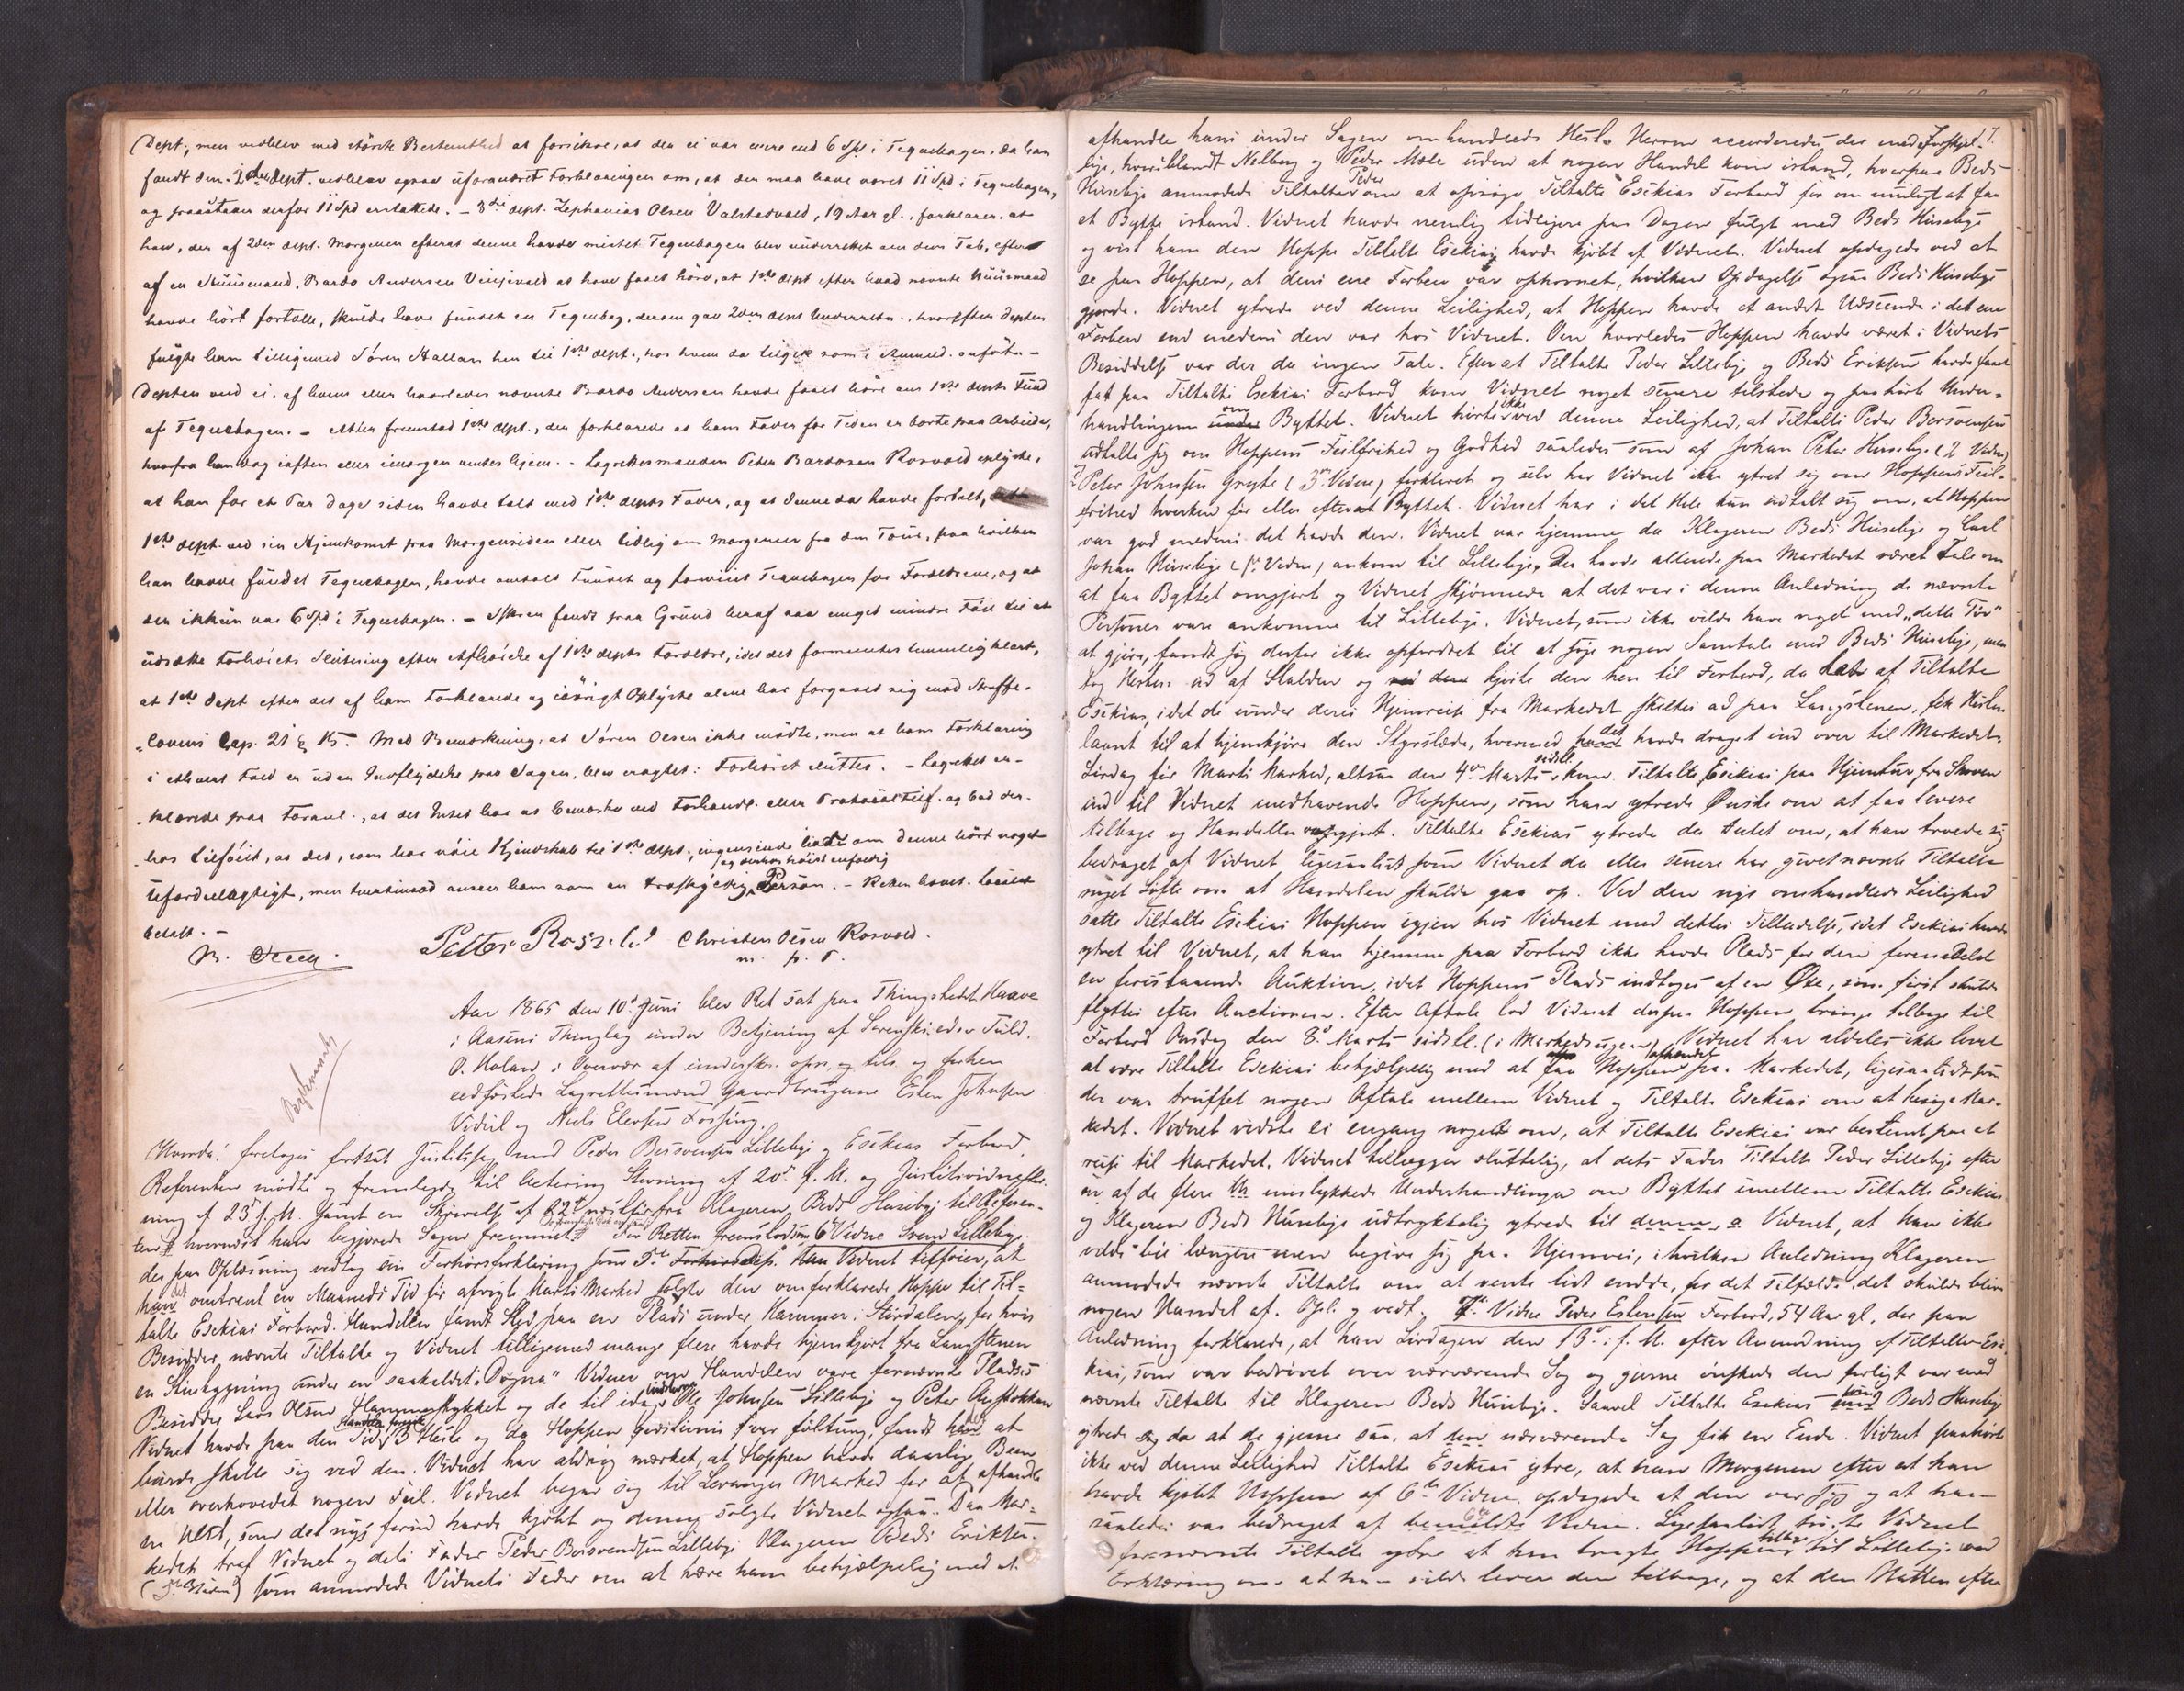 Dept., men vedblev med største Bestemthed at forsikre, at der ei var mere end 6 Spd i Tegnebogen, da han
fandt den. 2den Dept. vedblev ogsaa uforandret Forklaringen om, at der maa have været 11 Spd i Tegnebogen,
og paastaaer derfor 11 Spd erstattede. - 3die dept. Zephanias Olsen Valstadvald, 19 Aar gl., forklarer, at
han, da af 2den dept. Morgenen efterat denne havde mistet Tegnebogen blev underrettet om dens Tab, efter
af en Huusmand, Bardo Andersen at have faaet høre, at 1ste dept efter hvad nævnte Huusmand
havde hört fortælle, skulde have fundet en Tegnebog, derom gav 2den dept Underretn., hvorefter Depten
fulgte ham tilligemed Sören Hallan hen til 1ste dept., hos hvem da tilgik som i Anmeld. anfört. -
Depten veed ei, af hvem eller hvorledes nævnte Bardo Andersen havde faaet høre om 1ste depts Fund
af Tegnebogen. - Atter fremstod 1ste dept., der forklarede at hans Fader for Tiden er borte paa Arbeide,
hvorfra han dog iaften eller imorgen ventes hjem. - Lagrettesmanden Peter Bardosen Rosvold oplyste,
at han for et Par Dage siden havde talt med 1ste depts Fader, og at denne da havde fortalt, at
1ste dept. ved sin Hjemkomst paa Morgensiden eller tidlig om Morgenen fra den Tour, paa hvilken
han havde fundet Tegnebogen, havde omtalt Fundet og foreviist Tegnebogen for Forældrene, og at
der ikkun var 6 Spd i Tegnebogen. - fandt paa Grund heraf saa meget mindre Föie til at
udsætte Forhörets Slutning efter Afhörelse af 1ste depts Forældre, idet det formentes temmelig klart,
at 1ste dept efter det af ham Forklarede og iövrigt Oplyste alene har forgaaet sig mod Straffe-
lovens Cap. 21 § 15. Med Bemærkning, at Sören Olsen ikke mödte, men at hans Forklaring
i ethvert Fald er uden Indflydelse paa Sagen, blev eragtet: Forhöret sluttes. - Lagrettet er-
klærede paa Foranl., at det Intet har at bemærke ved Forhandl. eller Protocoltilf. og bad der-
hos tilföiet, at det, som har nöie Kjendskab til 1ste dept., ingensinde har om denne hört noget
og derhos höist enfoldig
ufordeelagtigt, men tvertimod anseer ham som en troskyldig Person. - Retten hævet.
betalt. -
Petter Rosvold Christen Olsen Rosvold.
m. p. P.
Aar 1865 den 10de Juni blev Ret sat paa Thingstedet Haave
i Aasens Thinglag under Betjening af Sorenskriver Fuld.
O. Holan, i Overvær af underskr. opn. og tils. og forhen
eedfæstede Lagrettesmænd Gaardbrugerne Esten Johnsen
Vidiil og Niels Elevsen Fossing.
Hvorda: foretoges fortsat Justitssag mod Peder Bersvensen Lillebye og Esekias Forbord.
Referenten mødte og fremlagde til Actering Stevning af 20de f. M. og Justitsvidneførs-
ning af 23de f. M. samt en Skrivelse af 22de næstfør fra Klageren Beds Huseby til Referen-
ten hvornæst han begjærede Sagen fremmet. For Retten fremstod som 6te Vidne Svend Lillebye
der paa Oplæsning vedtog sin Forhørsforklaring som 5te Forhørsdep. Vidnet tilføier, at
det omtrent en Maaneds Tid før afvigte Marts Marked solgte den omforklarede Hoppe til Til-
talte Esekias Forbord. Handelen fandt Sted paa en Plads under Hammer i Stördalen, for hvis
Besidder nævnte Tiltalte og Vidnet tilligemed mange flere havde hjemkjørt fra Langstenen
en Stuebygning under en saakaldet "Dogna" Vidner om Handelen vare fornævnte Pladses
Besidder Lars Olsen Hammerstykket og de til idag indstevnte Ole Johnsen Lillebye og Peter Aistokkan
Vidnet havde paa den Tid Handelen foregik 3 Heste og da Hoppen var föltung, fandt det at
burde skille sig ved den. Vidnet har aldrig mærket, at Hoppen havde daarlig Been
eller overhovedet nogen Feil. Vidnet begav sig til Levanger Marked for at afhandle
en Hest, som det nys forud havde kjøbt og denne solgte Vidnet ogsaa. Paa Mar-
kedet traf Vidnet og dets Fader Peder Bersvendsen Lillebye Klageren Beds Eriksen
som anmodede Vidnets Fader om at være ham behjælpelig med at
17.
afhandle hans under Sagen omhandlede Hest. Herom accorderedes der med Forskjel-
lige, hvoriblandt Nelberg og Peder Mæle uden at nogen Handel kom istand, hvorpaa Beds
Huseby anmodede Tiltalte Peder om at opsøge Tiltalte Esekias Forbord for om muligt at faa
et Bytte istand. Vidnet havde nemlig tidligere paa Dagen fulgt med Beds Husebye
og vist ham den Hoppe Tiltalte Esekias havde kjöbt af Vidnet. Vidnet opdagede ved at
se paa Hoppen, at dens ene Forben var ophovnet, hvilken Opdagelse ogsaa Beds Husebye
gjorde. Vidnet ytrede ved denne Leilighed, at Hoppen havde et andet Udseende i det ene
Forben end medens den var hos Vidnet. Om hvorledes Hoppen havde været i Vidnets
Besiddelse var der da ingen Tale. Efter at Tiltalte Peder Lillebye og Beds Eriksen havde faaet
fat paa Tiltalte Esekias Forbord kom Vidnet noget senere tilstede og paahørte Under-
handlingerne om Byttet. Vidnet hørte ikke ved denne Leilighed, at Tiltalte Peder Bersvensen
udtalte sig om Hoppens Feilfrihed og Godhed saaledes som af Johan Peter Husebye (2 Vidne)
og Peter Johnsen Grøgte (3de Vidne) forklaret og selv har Vidnet ikke ytret sig om Hoppens Feil-
frihed hverken før eller efterat Byttet. Vidnet har i det Hele kun udtalt sig om, at Hoppen
var god medens det havde den. Vidnet var hjemme da Klageren Beds Husebye og Carl
Johan Husebye (1ste Vidne) ankom til Lillebye. Der havde allerede paa Markedet været Tale om
at faa Byttet omgjort og Vidnet skjønnede at det var i denne Anledning de nævnte
Personer vare ankomne til Lillebye. Vidnet, som ikke vilde have noget med "dette Töv"
at gjøre, fandt sig derfor ikke opfordret til at søge nogen Samtale med Beds Husebye, men
tog Hesten ud af Stalden og kjørte den hen til Forbord, da det af Tiltalte
Esekias, idet de under deres Hjemreise fra Markedet skiltes ad paa Langstenen, fik Hesten
laant til at hjemkjøre den Skyvslæde, hvormed det havde draget ind over til Markedet.
Lørdag før Marts Marked, altsaa den 4de Marts sidstl. kom Tiltalte Esekias paa Hjemtur fra Skoven
ind til Vidnet medhavende Hoppen, som han ytrede Ønske om at faa levere
tilbage og Handelen opgjort. Tiltalte Esekias ytrede da Intet om, at han troede sig
bedraget af Vidnet ligesaalidt som Vidnet da eller senere har givet nævnte Tiltalte
noget Løfte om at Handelen skulde gaa op. Ved den nys omhandlede Leilighed
satte Tiltalte Esekias Hoppen igjen hos Vidnet med dettes Tilladelse, idet Esekias havde
ytret til Vidnet, at han hjemme paa Forbord ikke havde Plads for den formedelst
en forestaaende Auktion, idet Hoppens Plads indtoges af en Øse, som først skulde
flyttes efter Auctionen. Efter Aftale lod Vidnet derpaa Hoppen bringe tilbage til
Forbord Onsdag den 8de Marts sidstl. (i Markedsugen). Vidnet har aldeles ikke lovet
at være Tiltalte Esekias behjælpelig med at faa Hoppen afhændet paa Markedet, ligesaalidt som
der var truffet nogen Aftale mellem Vidnet og Tiltalte Esekias om at besøge Mar-
kedet. Vidnet vidste ei engang noget om, at Tiltalte Esekias var bestemt paa at
reise til Markedet. Vidnet tillægger sluttelig, at dets Fader Tiltalte Peder Lillebye efter
en af de flere mislykkede Underhandlinger om Byttet imellem Tiltalte Esekias
og Klageren Beds Husebye udtrykkelig ytrede til denne, Vidnet, at han ikke
vilde bie længere men begive sig paa Hjemvei, i hvilken Anledning Klageren
anmodede nævnte Tiltalte om at vente lidt endda, for det Tilfælde det skulde blive
nogen Handel af. Opl. og vedt. 7de Vidne Peder Estensen Forbord, 54 Aar gl, der paa
Anledning forklarede, at han Lørdagen den 13de i f. M. efter Anmodning af Tiltalte Ese-
kias, som var bedrøvet over nærværende Sag og gjerne ønskede den forligt var med
nævnte Tiltalte til Klageren Beds Husebye. Saavel Tiltalte Esekias som Beds Husebye
ytrede sig da at de gjerne saa, at den nærværende Sag fik en Ende. Vidnet paahørte
ikke ved denne Leilighed Tiltalte Esekias ytre, at han Morgenen efter at han
havde kjøbt Hoppen af 6te Vidne, opdagede at den var syg og at han
saaledes var bedraget af bemeldte Vidne. Ligesaalidt hørte Vidnet
fornævnte Tiltalte ytre at han bragte Hoppen tilbage til Lillebye med
Erklæring om at han vilde levere den tilbage, og at den Natten efter